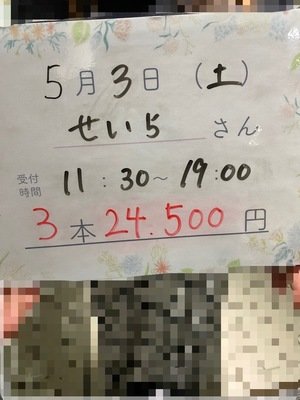 5月3日(土)
せいちさん
受付時間 11:30~19:00
3本24.500円